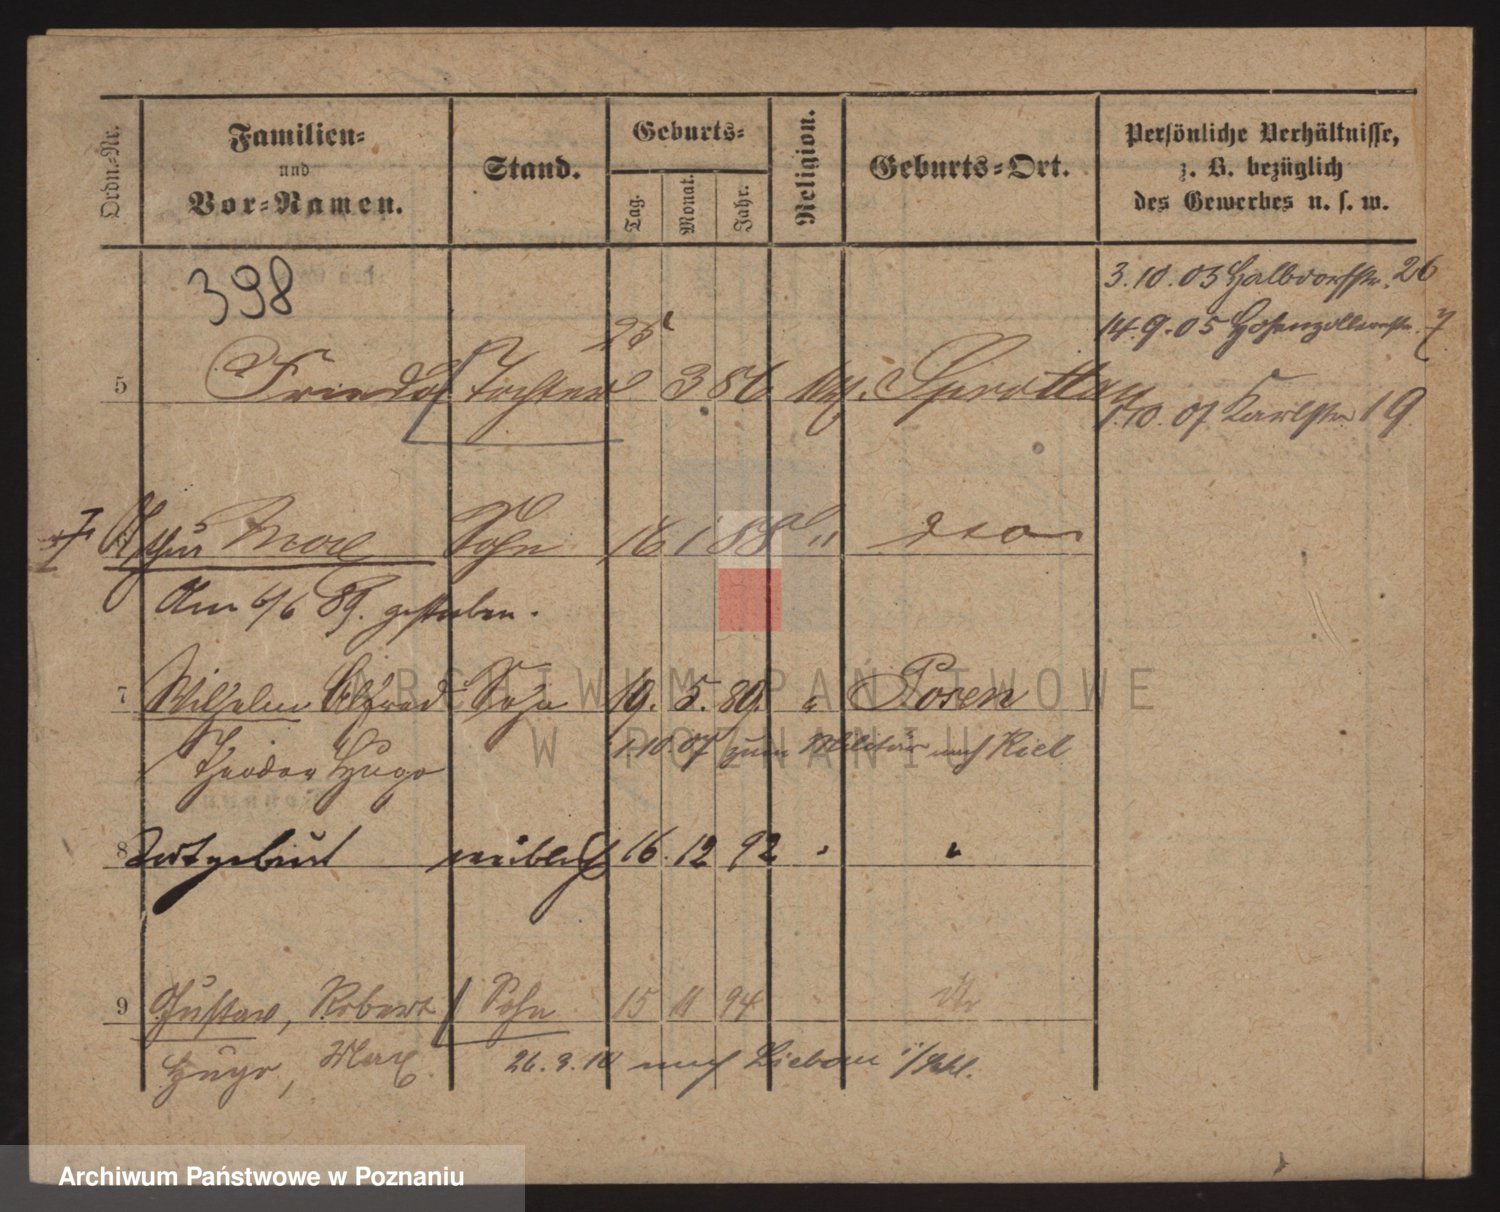 Ordn-Nr.
Familien-
und
Vor-Namen.
Stand.
Geburts-
Tag.
Monat.
Jahr.
Religion.
Geburts-Ort.
Persönliche Verhältnisse,
z. B. bezüglich
des Gewerbes u. s. w.
398
3.10.03 Halbdorfstr. 26
14.9.05 Hohenzollernstr. 7
5 Frieda Tochter 28 3 86 Sprottau
1.10.07 Karlstr 19
Arthur Max Sohn 16 1 88 " dto
Am 6/6 89. gestorben.
7 Wilhelm Alfred Sohn 19. 5. 89. " Posen
Theodor Hugo
1.10.07 zum Militär nach Kiel
8 Totgeburt weiblich 16. 12 92 " "
9 Gustav, Robert Sohn 15 11 94
Hugo, Max.
26.9.10 nach Liebau i/Schl.
ARCHIWUM PAŃSTWOWE
W POZNANIU
Archiwum Państwowe w Poznaniu